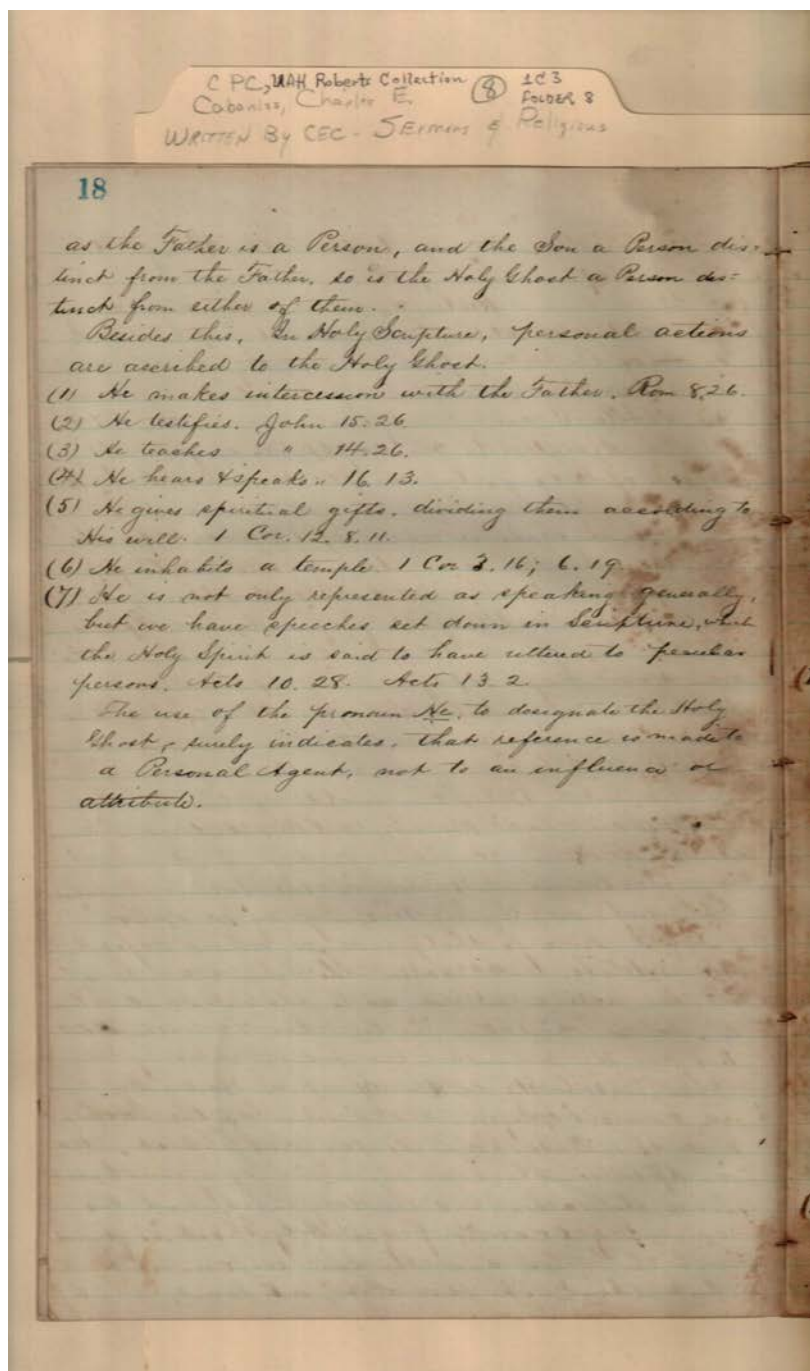 C PC, UAH Roberts Collection (8) 1C3
Cabaniss, Charles E. FOLDER 8
WRITTEN By CEC - SERMONS & Religious
18
as the Father is a Person, and the Son a Person dis=
tinct from the Father, so is the Holy Ghost a Person dis=
tinct from either of them.
Besides this, In Holy Scripture, personal actions
are ascribed to the Holy Ghost.
(1) He makes intercession with the Father. Rom 8.26.
(2) He testifies. John 15.26.
(3) He teaches " 14.26.
(4) He hears & speaks " 16.13.
(5) He gives spiritual gifts, dividing them according to
His will. 1 Cor. 12. 8. 11.
(6) He inhabits a temple 1 Cor 3.16; 6.19.
(7) He is not only represented as speaking generally,
but we have speeches set down in Scripture, which
the Holy Spirit is said to have uttered to peculiar
persons. Acts 10.28. Acts 13.2.
The use of the pronoun He, to designate the Holy
Ghost, surely indicates, that reference is made to
a Personal Agent, not to an influence or
attribute.